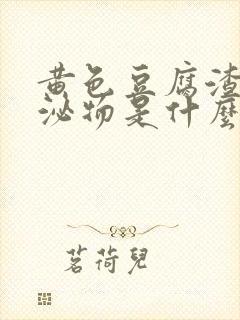 黄色豆腐渣
泌物是什麼
茗荷兒